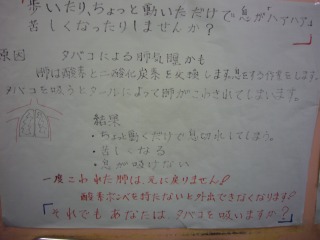 歩いたり、ちょっと動いただけで息が「ハアハア」
苦しくなったりしませんか?
原因 タバコによる肺気腫かも
肺は酸素と二酸化炭素を交換します。息をする作業をします。
タバコを吸うとタールによって肺がこわされてしまいます。
結果
・ちょっと動くだけで息切れしてしまう。
・苦しくなる
・息が吐けない
一度こわれた肺は、元に戻りません!
酸素ボンベを持たないと外出できなくなります!
「それでもあなたは、タバコを吸いますか?」